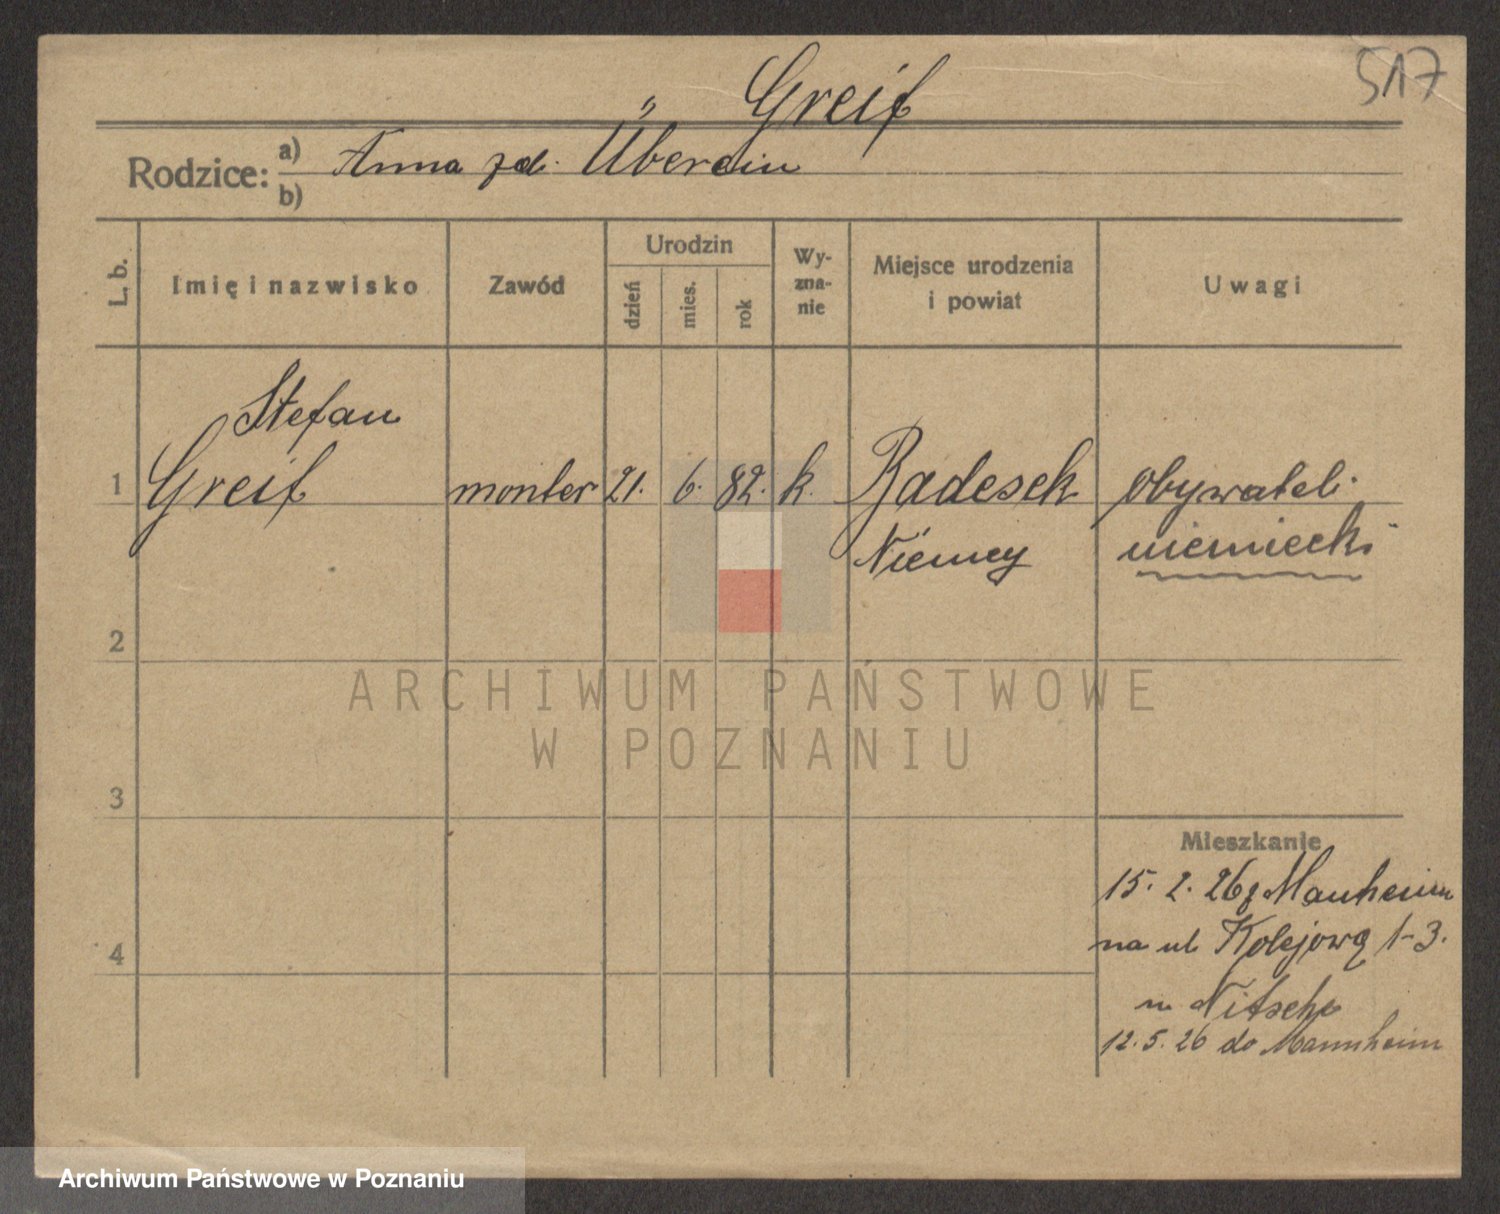 517
Greif
Rodzice: a) Anna zd. Überein
b)
L. b. Imię i nazwisko Zawód Urodzin dzień mies. rok Wyznanie Miejsce urodzenia i powiat Uwagi
Stefan
1 Greif monter 21. 6. 82. k. Radesek obywatel
Niemcy niemiecki
2
ARCHIWUM PAŃSTWOWE
W POZNANIU
3
Mieszkanie
15. 2. 26 z Manheim
na ul Kolejową 1-3.
4
Nitsche
12. 5. 26 do Mannheim
Archiwum Państwowe w Poznaniu